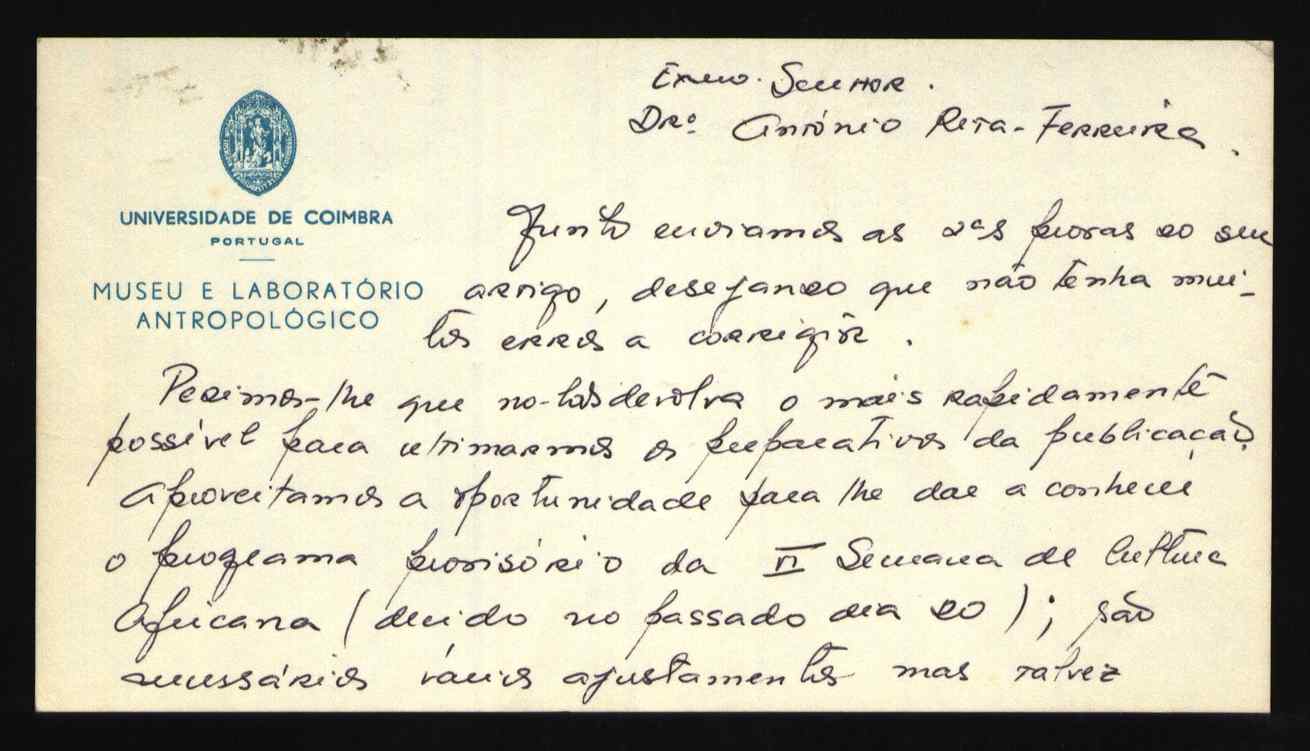 UNIVERSIDADE DE COIMBRA
PORTUGAL
MUSEU E LABORATÓRIO
ANTROPOLÓGICO
Exmo. Senhor.
Drº António Rita-Ferreira.
Junto enviamos as 2ªs provas do seu
artigo, desejando que não tenha mui-
tos erros a corrigir.
Pedimos-lhe que no-las devolva o mais rapidamente
possível para ultimarmos os preparativos da publicação.
Aproveitamos a oportunidade para lhe dar a conhecer
o programa provisório da II Semana de Cultura
Africana ( no passado dia 20); são
necessários vários ajustamentos mas talvez